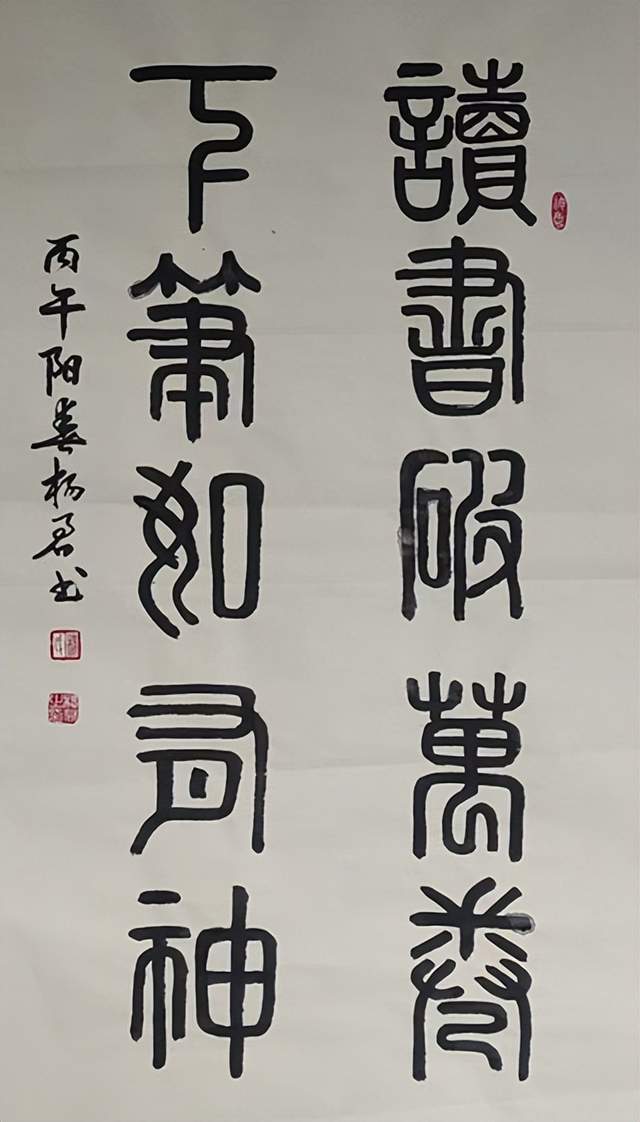 讀書破萬卷
下筆如有神
丙午阳春杨君书